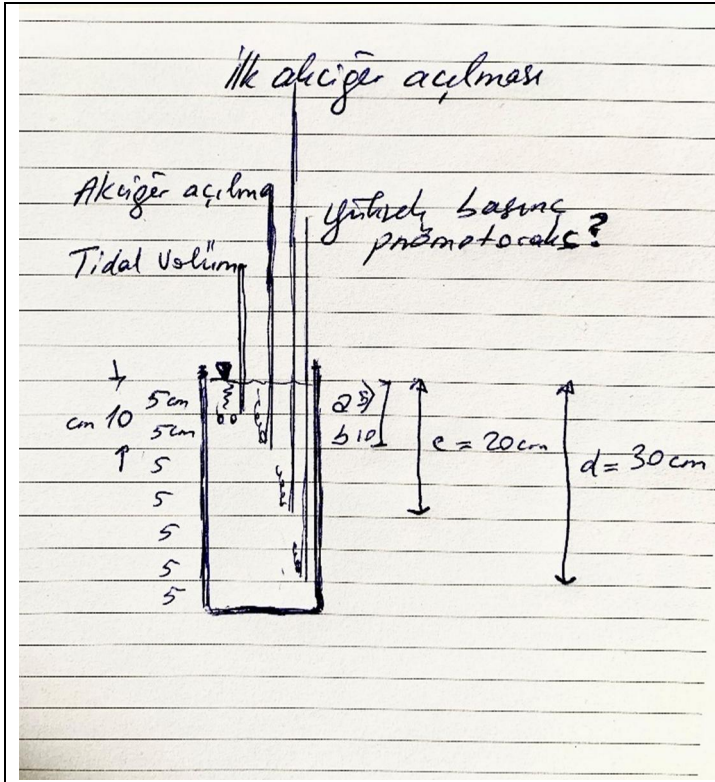 İlk akciğer açılması
Akciğer açılma
yüksek basınç
pnömotoraks?
Tidal Volüm
5 cm
cm 10
5 cm
5
5
5
5
5
a 5
b 10
c = 20 cm
d = 30 cm